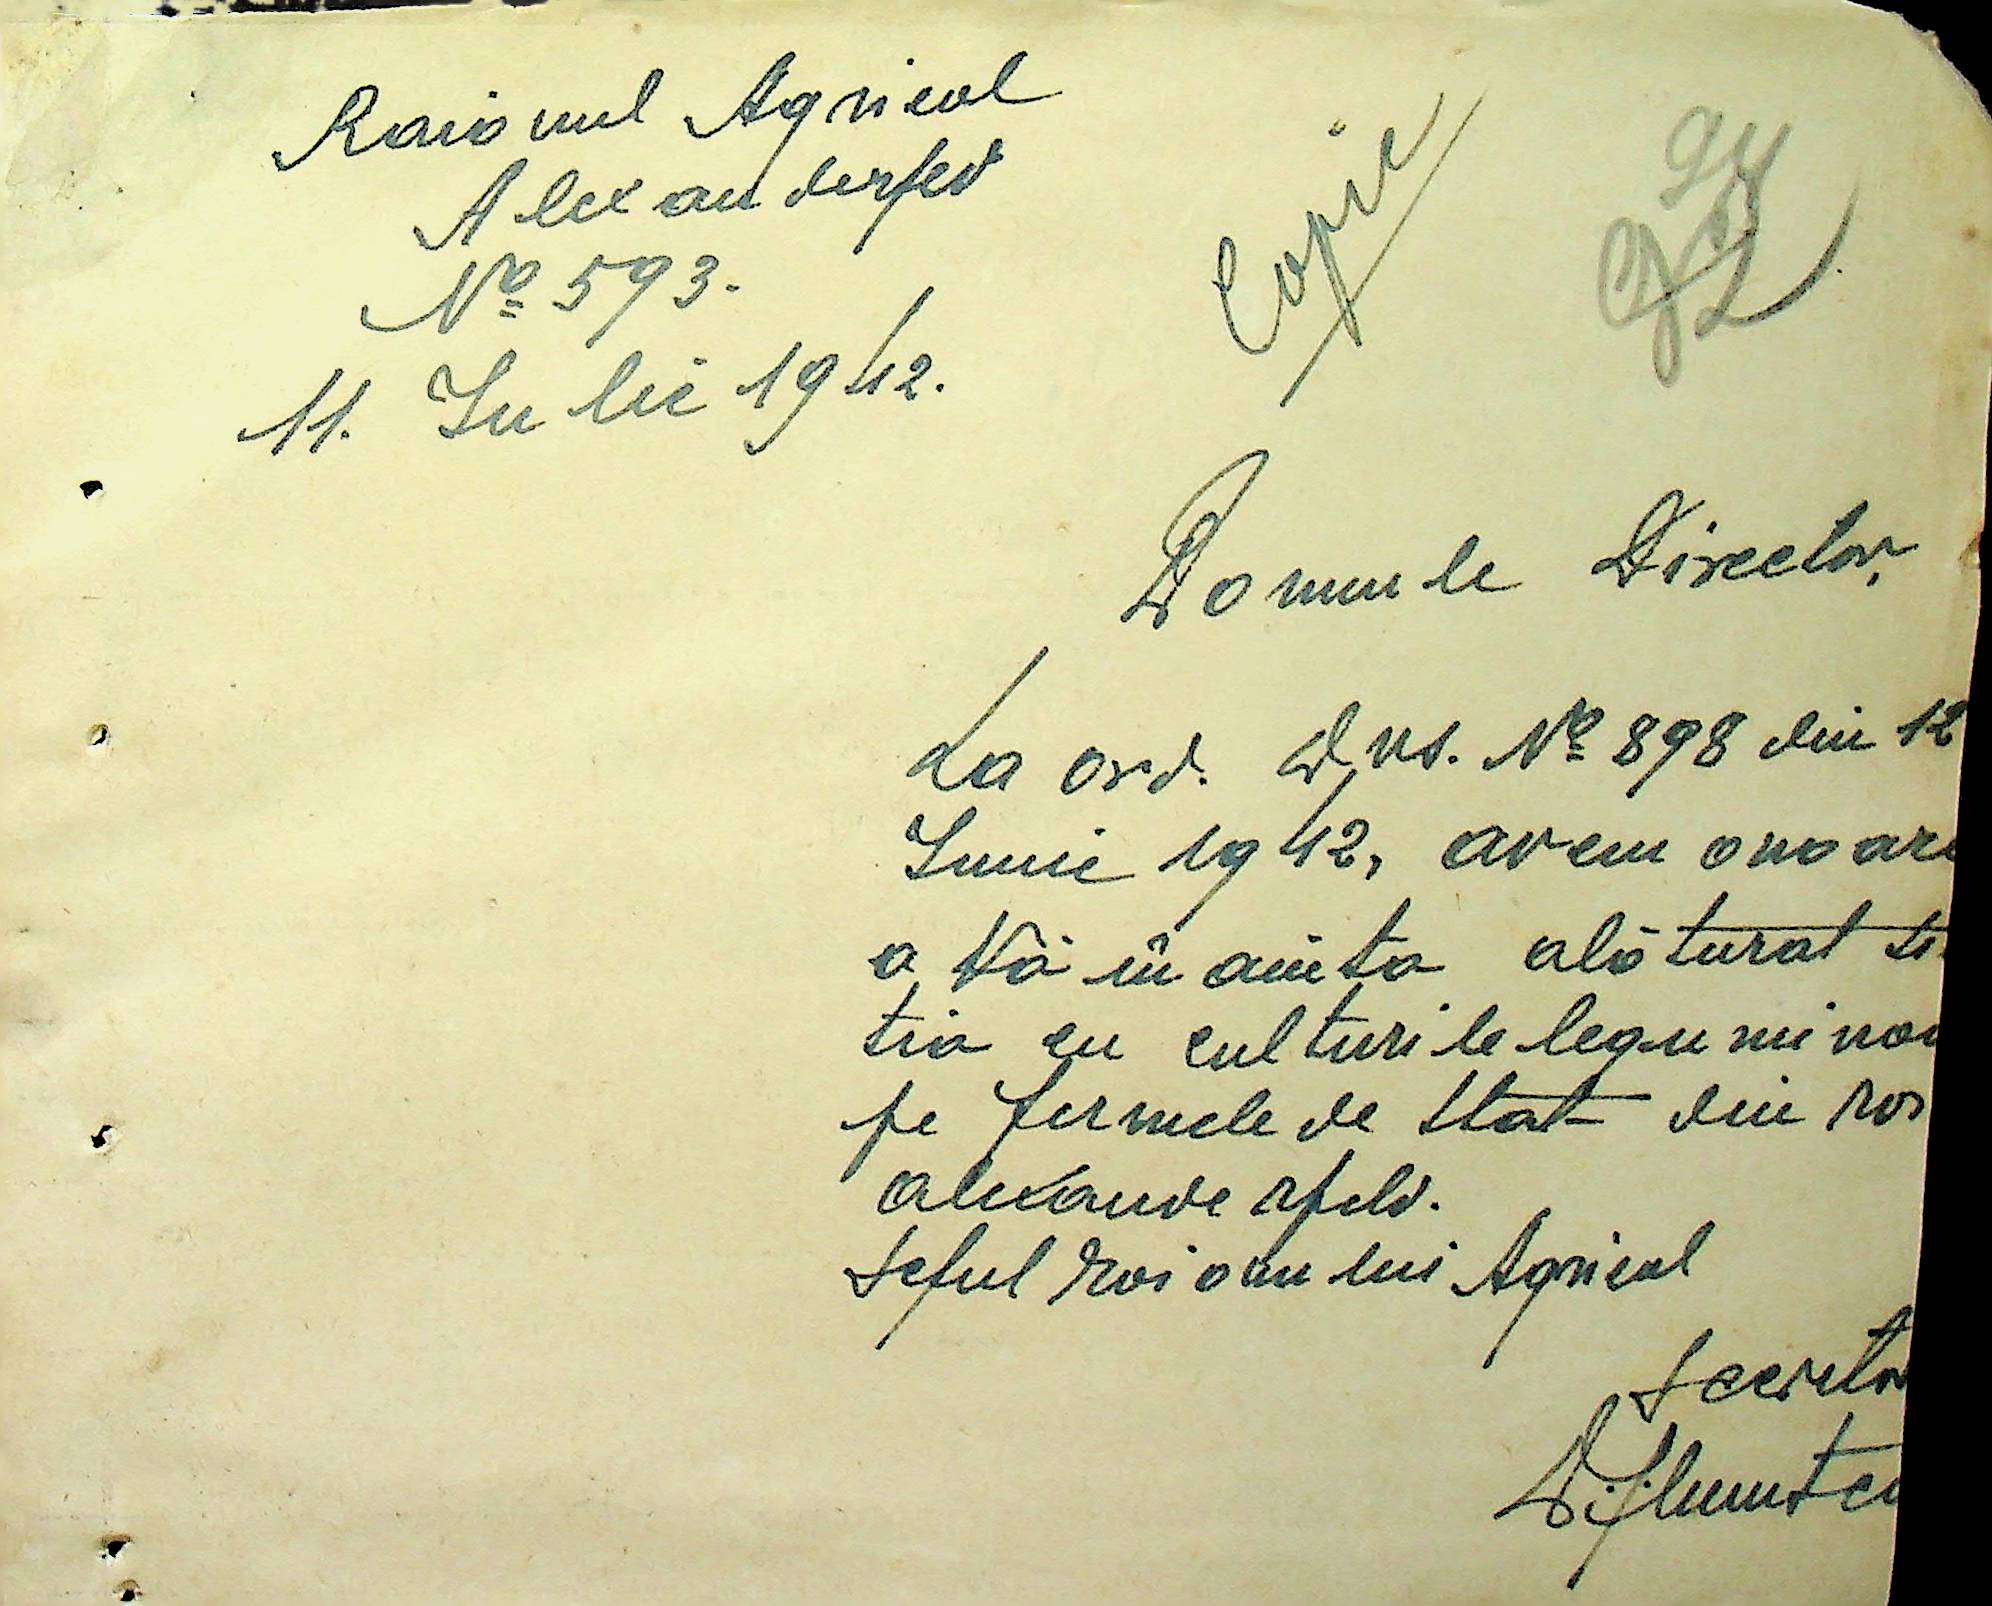 Raionul Agricol
Alexanderfed
Nº 593.
11. Iulie 1942.
Copie
Domnule Director,
La ord. Dvs. Nº 898 din 12
Iunie 1942, avem onoare
a Vă înainta alăturat si
tia cu culturile legumino
pe fermele de Stat din rai
alexanderfeld.
Șeful raionului Agricol
Secretar